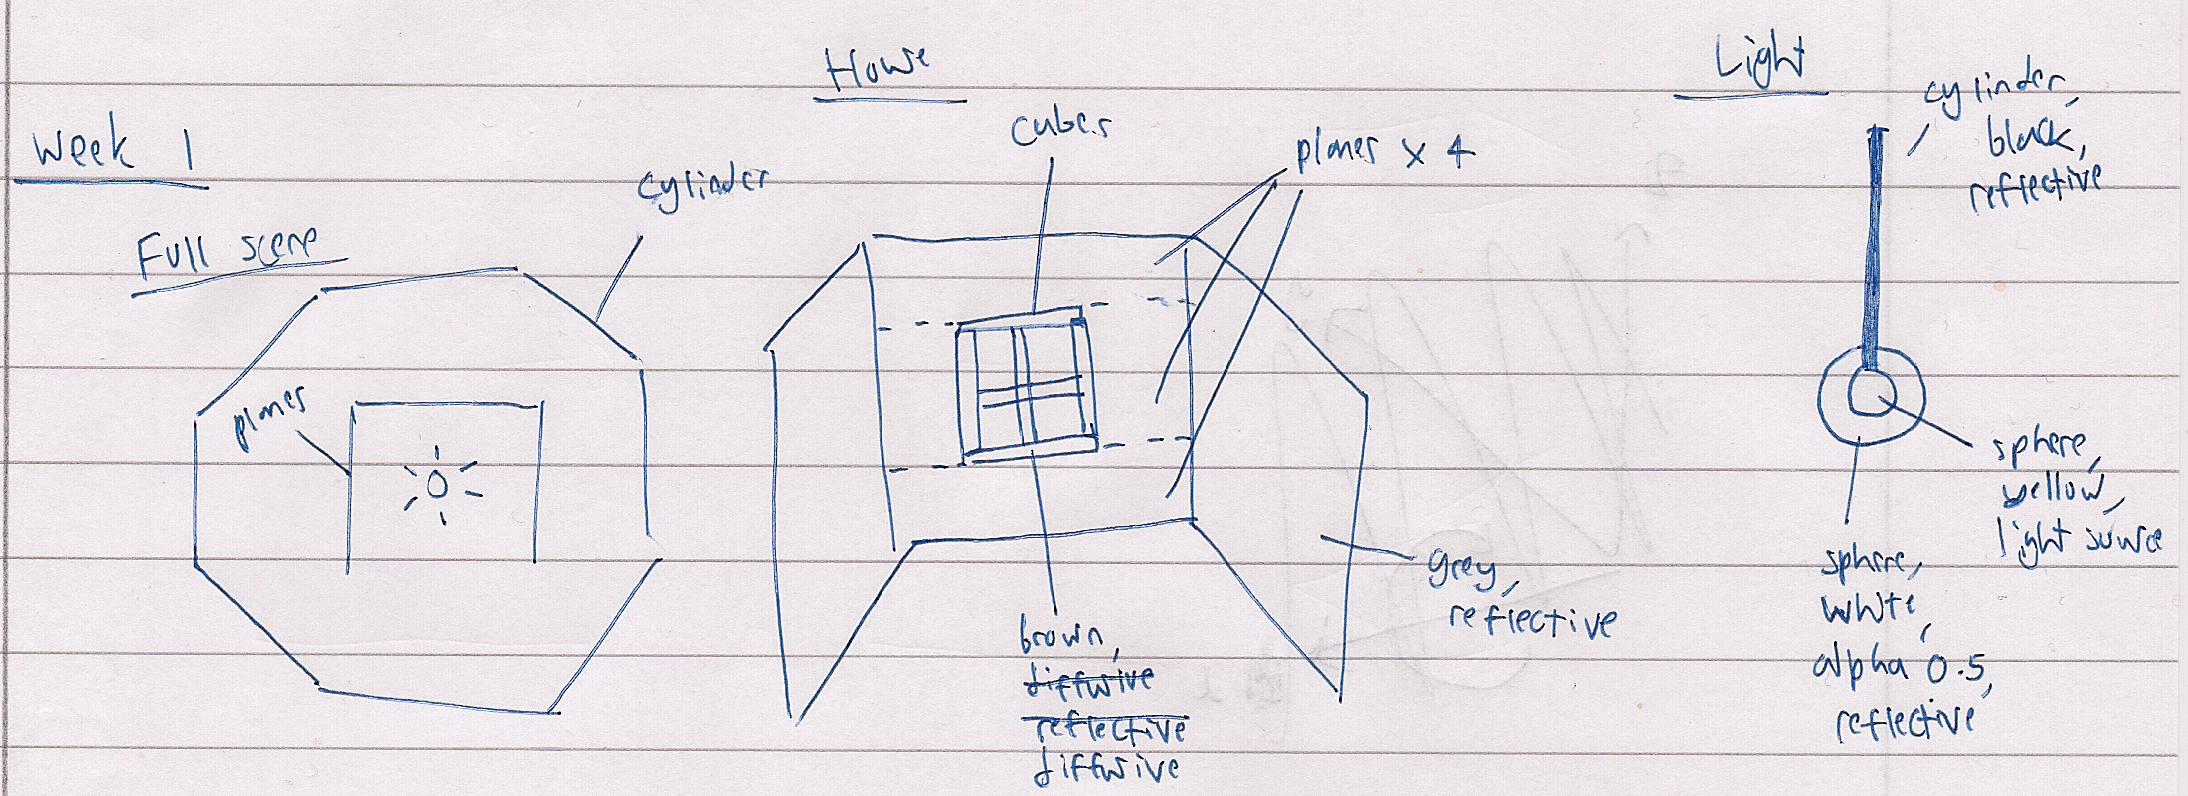 Week 1
Full scene
cylinder
planes
House
cubes
planes x 4
brown,
diffusive
reflective
diffusive
grey,
reflective
Light
cylinder,
black,
reflective
sphere,
yellow,
light source
sphere,
white,
alpha 0.5,
reflective